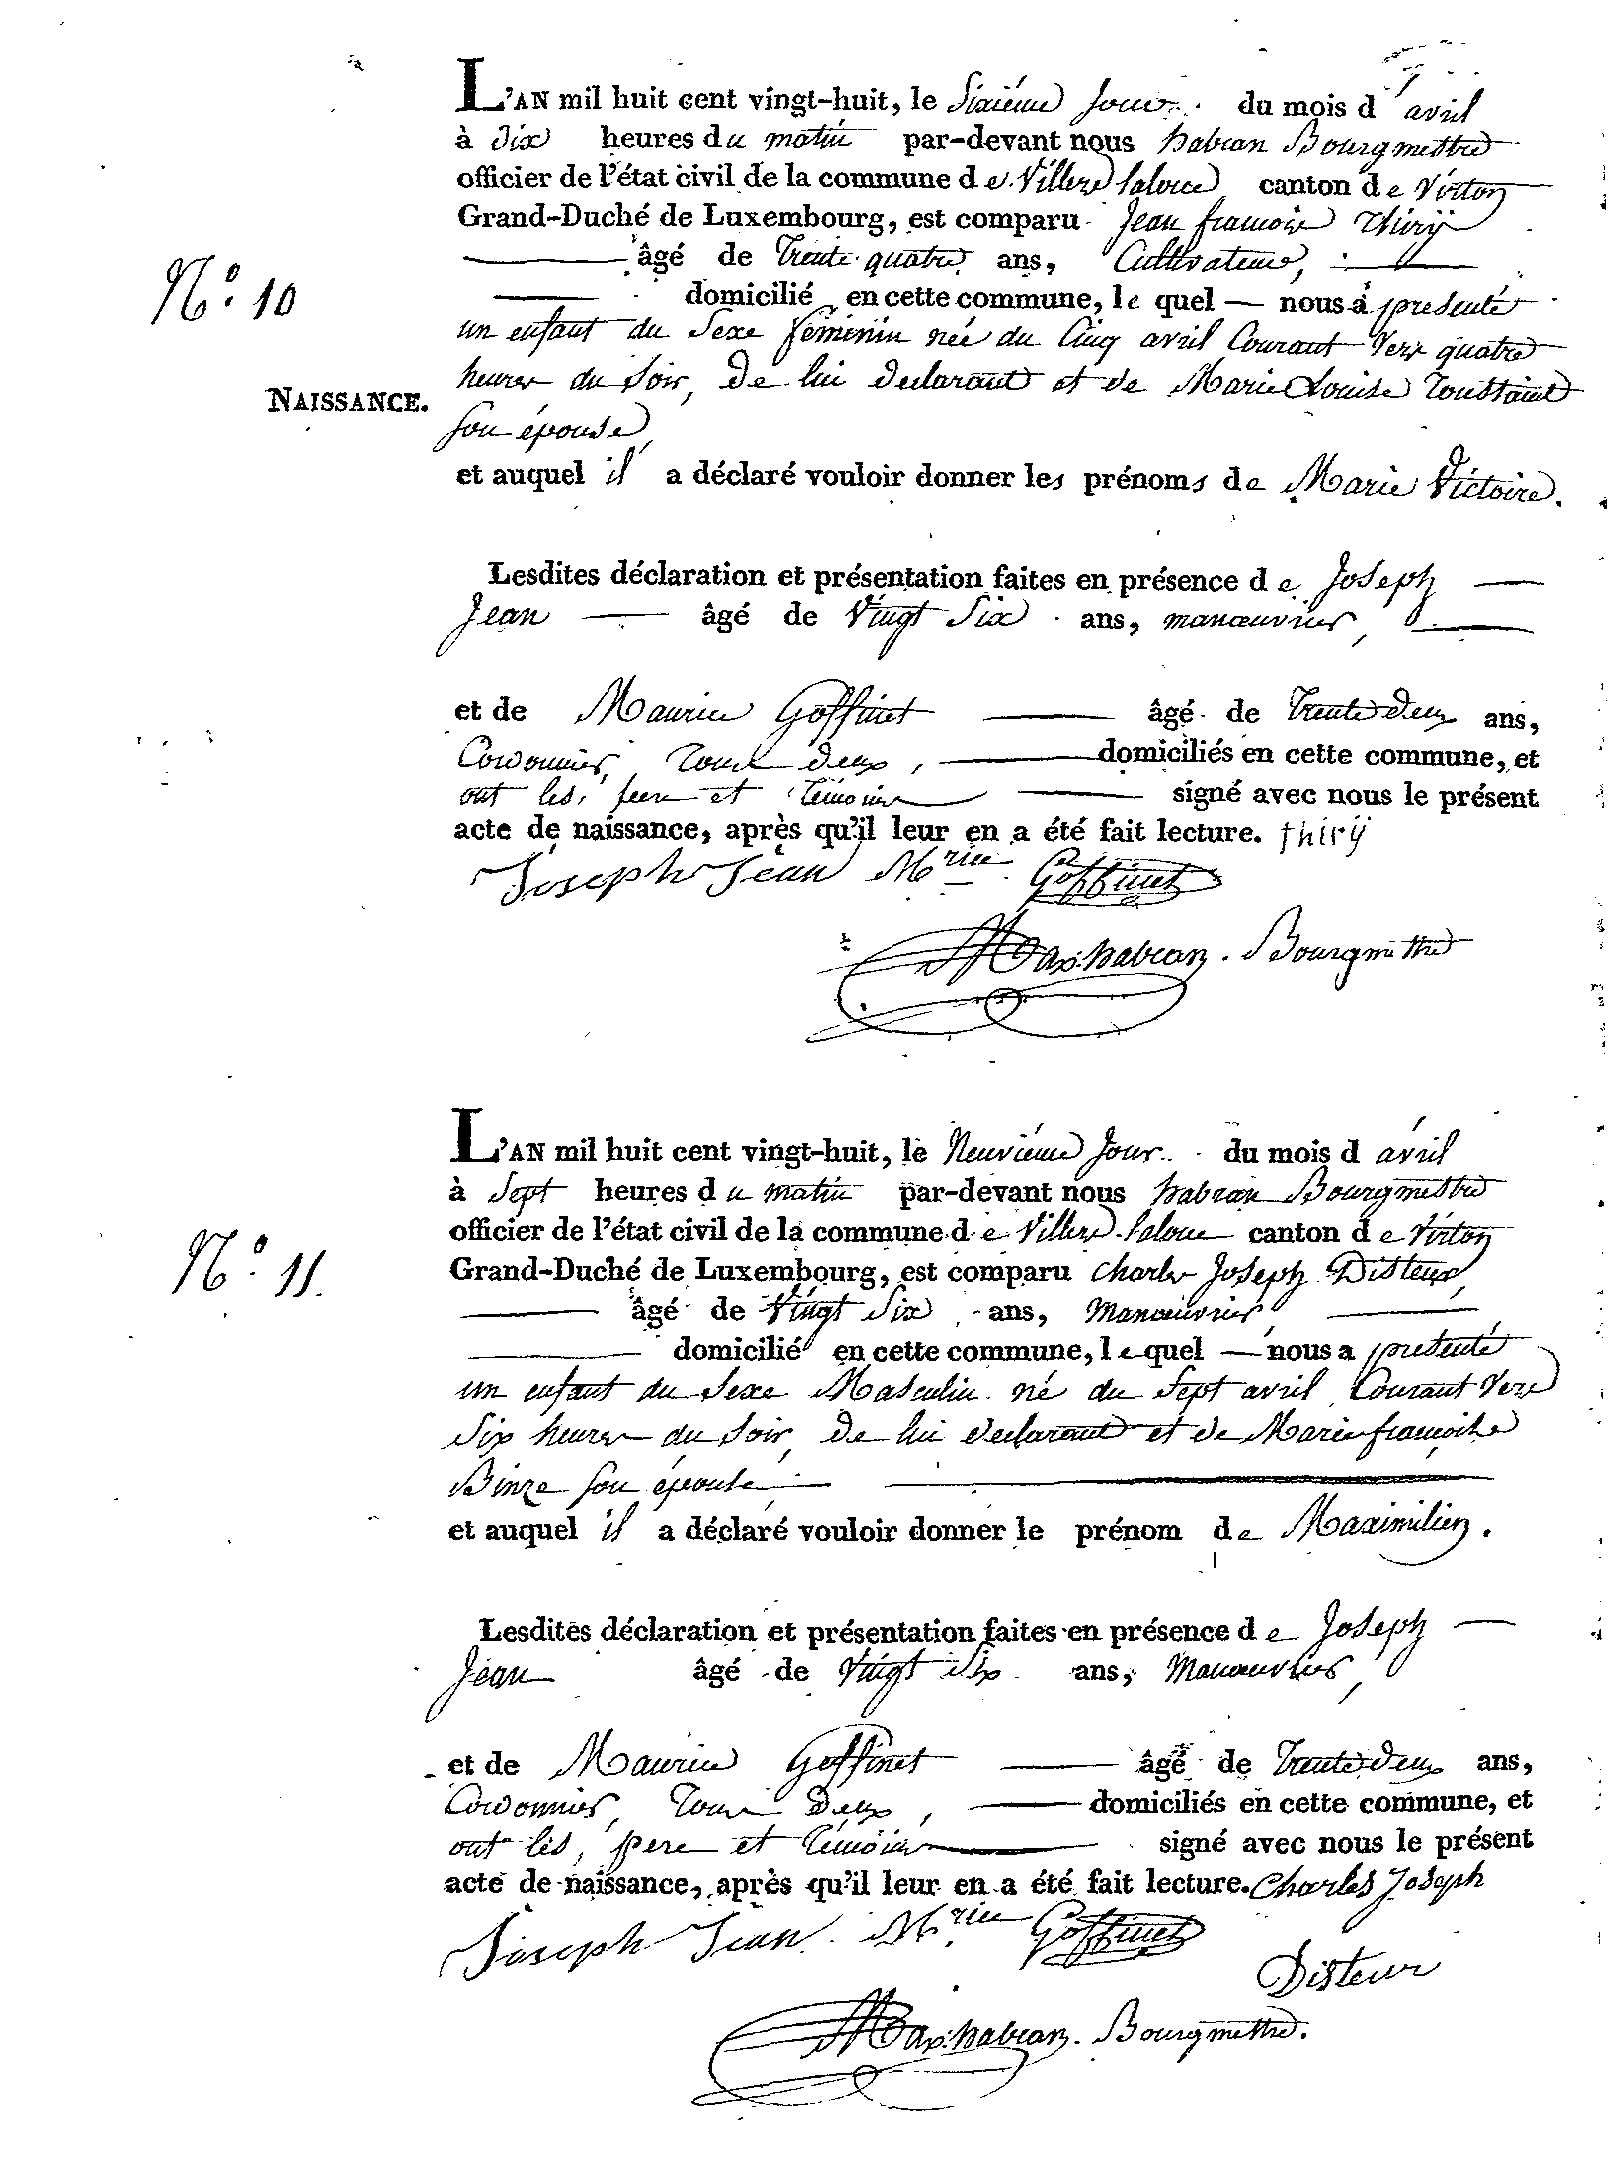 L'AN mil huit cent vingt-huit, le Sixiéme Jour du mois d'avril
à dix heures du matin par-devant nous habran Bourgmettre
officier de l'état civil de la commune de Villers laloue canton de Virton
Grand-Duché de Luxembourg, est comparu Jean francois thirÿ
âgé de trente quatre ans, Cultivateur,
N.° 10
domicilié en cette commune, le quel — nous à presenté
un enfant du Sexe feminin née du Cinq avril Courant vers quatre
heures du Soir, de lui declarant et de Marie Louise Toustaint
NAISSANCE.
son épouse,
et auquel il a déclaré vouloir donner les prénoms de Marie Victoire.
Lesdites déclaration et présentation faites en présence de Joseph —
Jean — âgé de vingt Six ans, manœuvrier,
et de Maurice Goffinet — âgé de trente deux ans,
Cordonnier, tous deux, — domiciliés en cette commune, et
ont les, pere et témoins — signé avec nous le présent
acte de naissance, après qu'il leur en a été fait lecture. thirÿ
Joseph Jean M.rice Goffinet
Max. habran. Bourgmettre
L'AN mil huit cent vingt-huit, le Neuviéme Jour du mois d avril
à Sept heures du matin par-devant nous habran Bourgmettre
officier de l'état civil de la commune de Villers laloue canton de Virton
N.° 11.
Grand-Duché de Luxembourg, est comparu Charles Joseph Disteur,
âgé de Vingt Six ans, Manœuvrier,
domicilié en cette commune, le quel — nous a presenté
un enfant du Sexe Masculin né du Sept avril Courant vers
Six heures du Soir, de lui declarant et de Marie françoise
Binze son épouse,
et auquel il a déclaré vouloir donner le prénom de Maximilien.
Lesdites déclaration et présentation faites en présence de Joseph —
Jean âgé de vingt Six ans, Manœuvrier,
et de Maurice Goffinet — âgé de trente deux ans,
Cordonnier, tous deux, — domiciliés en cette commune, et
ont les, pere et témoins — signé avec nous le présent
acte de naissance, après qu'il leur en a été fait lecture. Charles Joseph
Joseph Jean. M.rice Goffinet
Disteur
Max. habran. Bourgmettre.